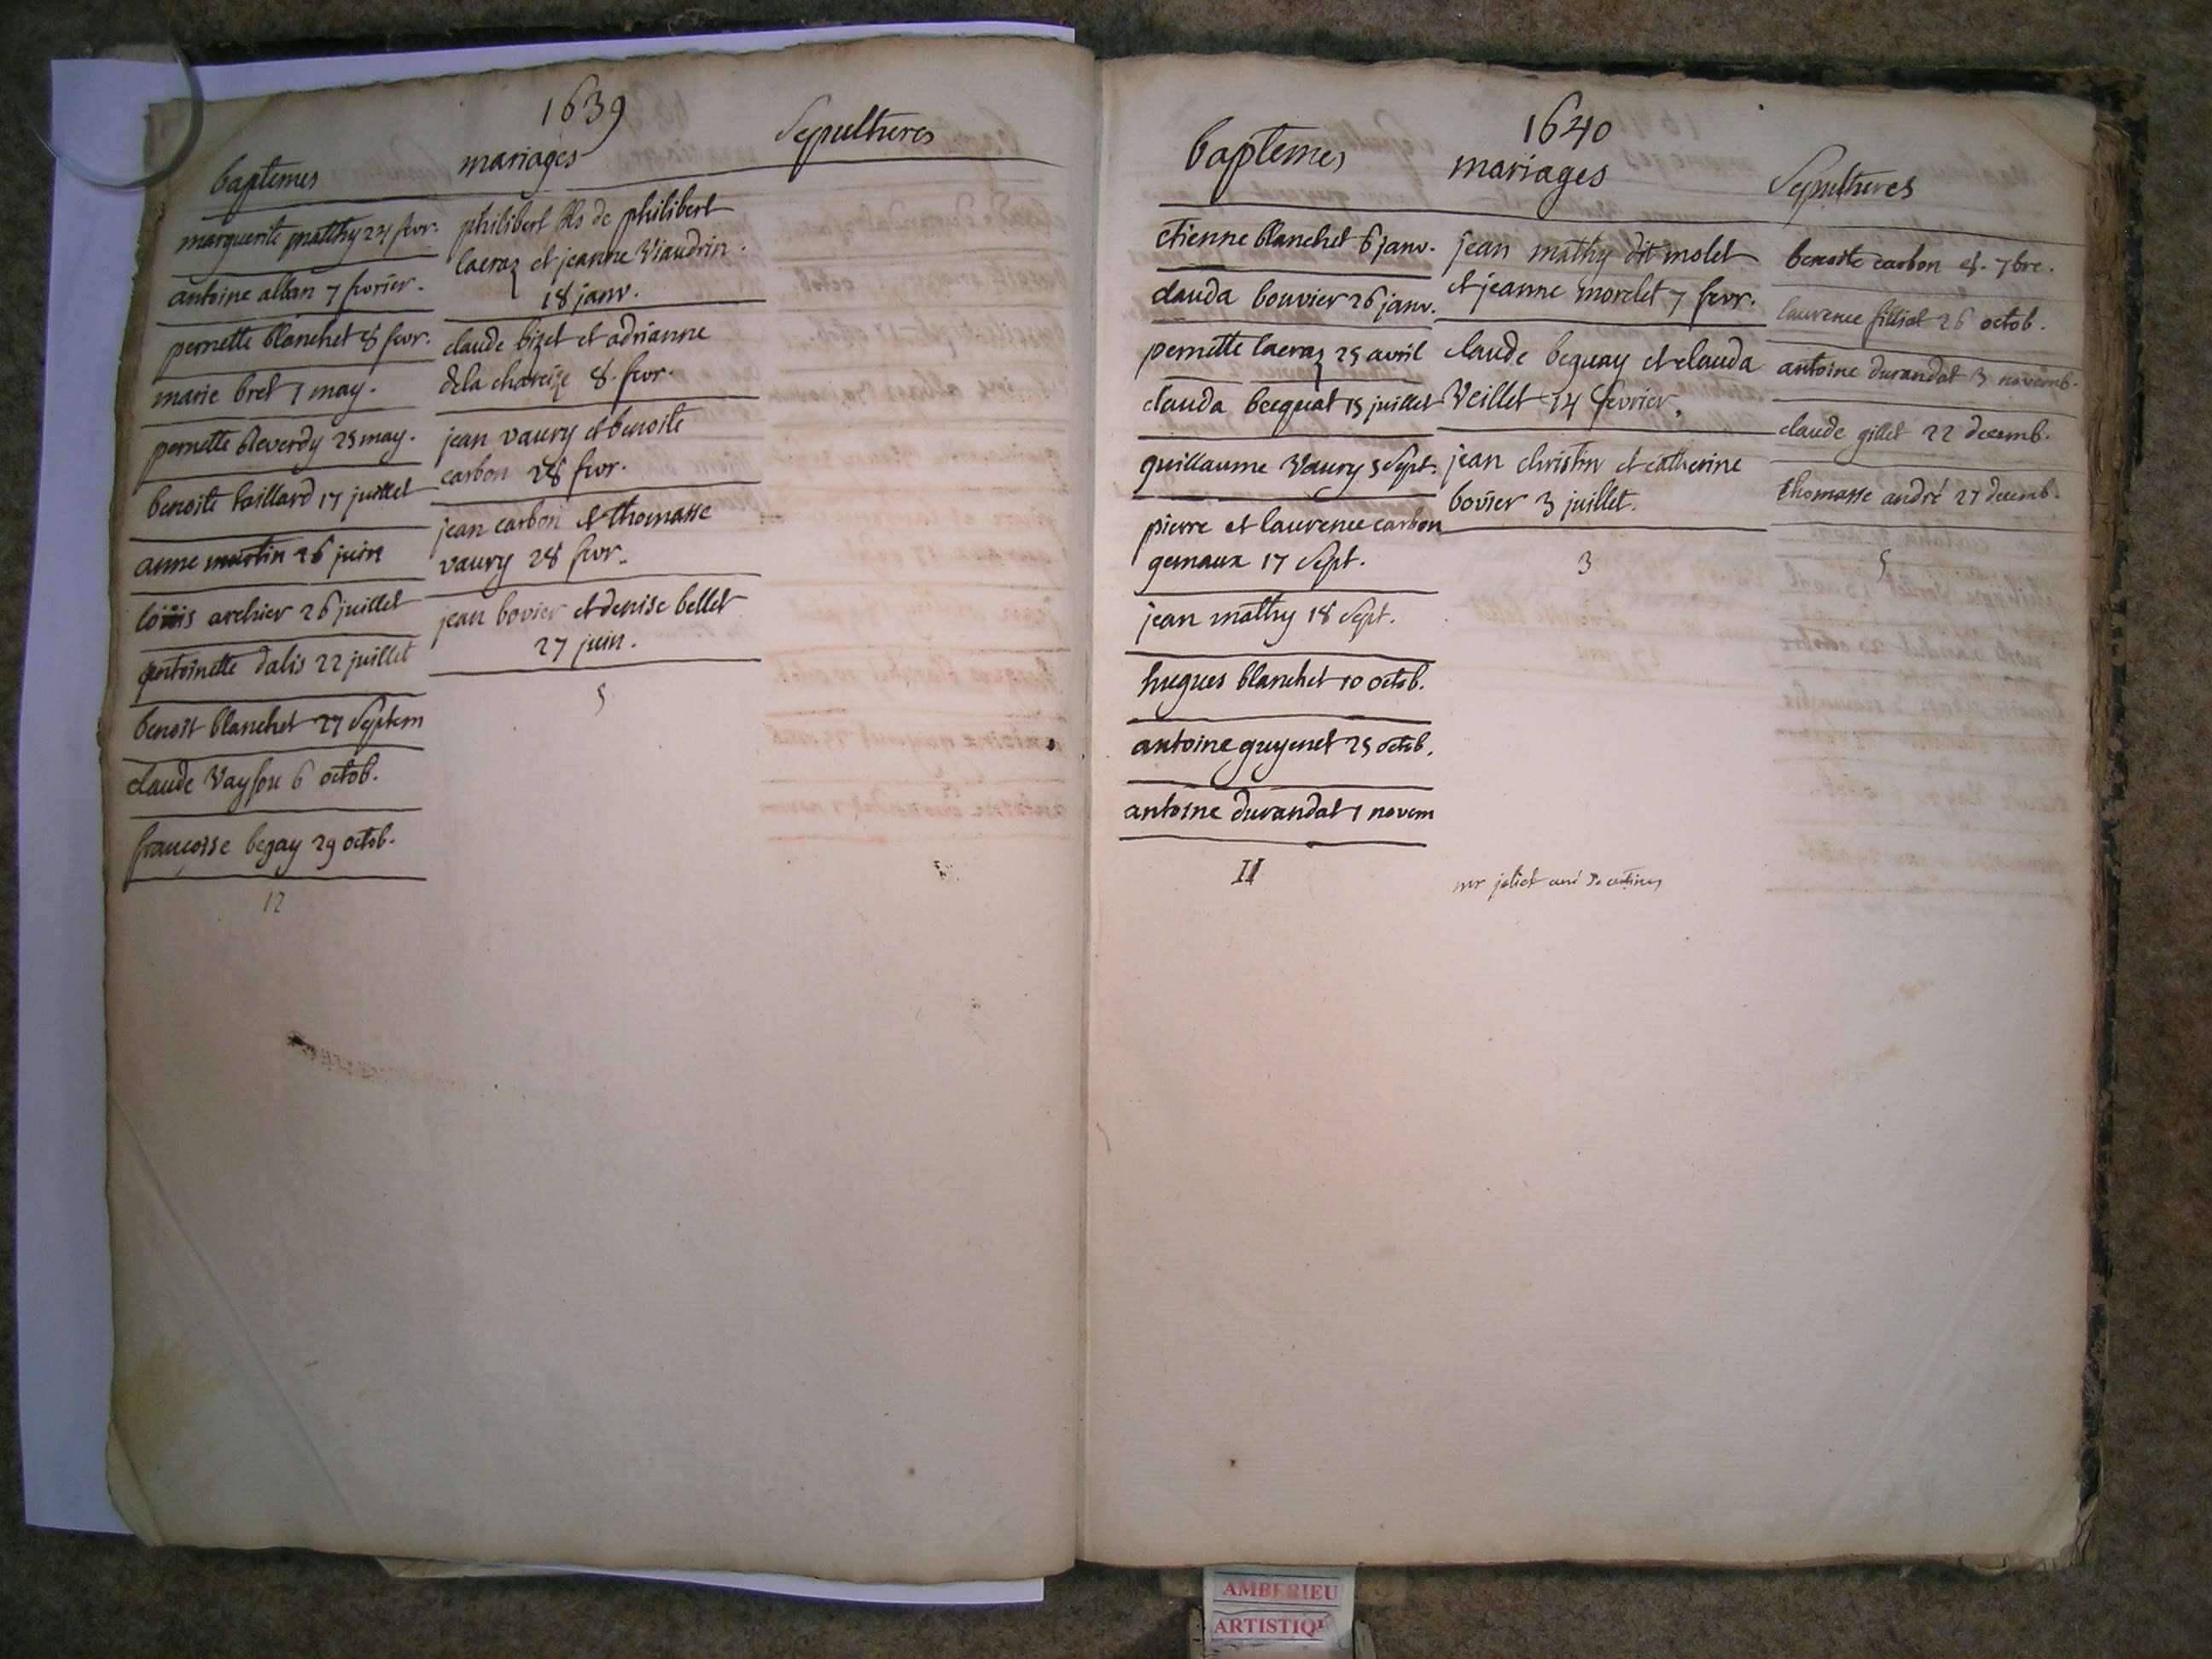 1639
baptemes
marguerite matthy 24 fevr.
antoine alban 7 fevrier.
pernette blanchet 8 fevr.
marie bret 1 may.
pernette cleverdy 25 may.
benoite taillard 17 juillet
anne martin 26 juin
loüis archier 26 juillet
antoinette dalis 22 juillet
benoit blanchet 27 Septem
claude Vaysou 6 octob.
françoise begay 29 octob.
12
mariages
philibert fils de philibert
lacraz et jeanne Viaudrin.
18 janv.
claude bizet et adrianne
dela chareize 8. fevr.
jean vaury et benoite
carbon 28 fevr.
jean carbon et thomasse
vaury 28 fevr.
jean bovier et denise bellet
27 juin.
5
Sepultures
1640
baptemes
etienne blanchet 6 janv.
clauda bouvier 26 janv.
pernette lacraz 25 avril
clauda becquat 15 juillet
guillaume Vaury 5 Sept.
pierre et laurence carbon
gemaux 17 Sept.
jean mathy 18 Sept.
hugues blanchet 10 octob.
antoine guyenet 25 octob.
antoine durandat 1 novem
11
mariages
jean mathy dit molet
et jeanne morelet 7 fevr.
claude beguay et clauda
Veillet 14 fevrier.
jean christin et catherine
bovier 3 juillet.
3
mr joliet curé
Sepultures
benoite carbon 7bre.
laurence filliat 26 octob.
antoine durandat 3 novemb.
claude gillet 22 decemb.
thomasse andré 27 decemb.
5
AMBERIEU
ARTISTIQU